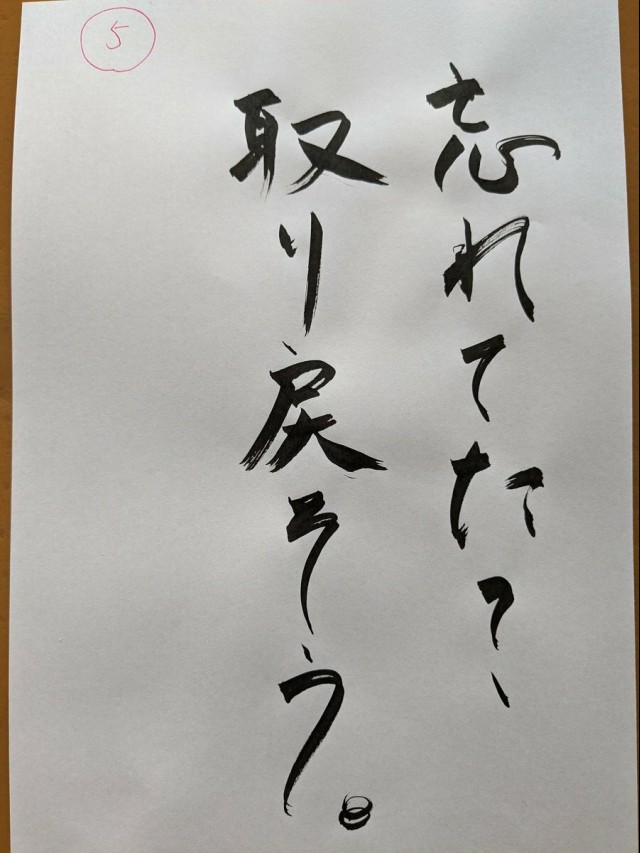 ⑤
忘れてた？
取り戻そう。